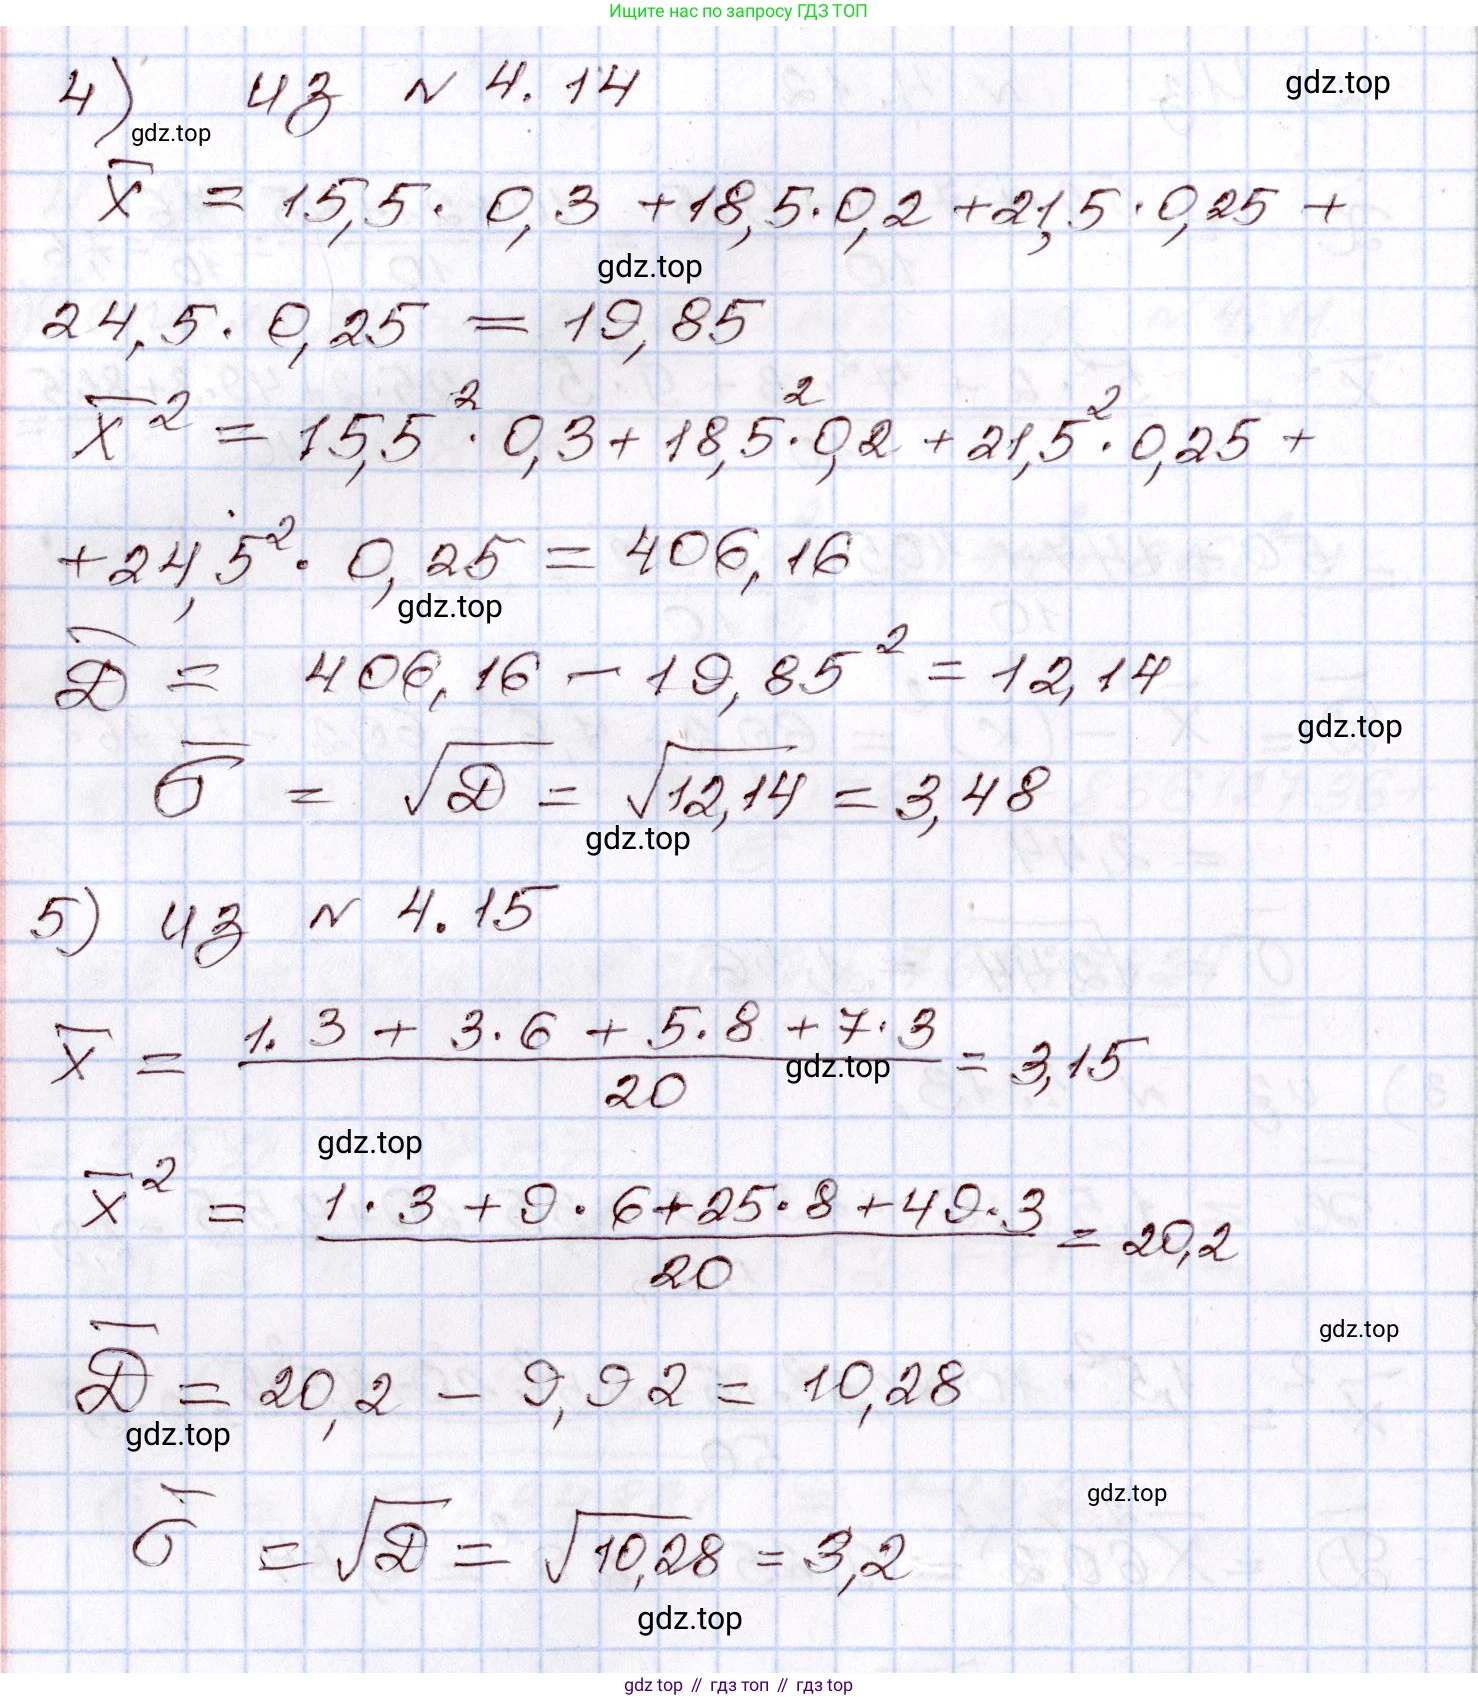 Ищите нас по запросу ГДЗ ТОП
4) из № 4.14
gdz.top
gdz.top
x̅ = 15,5 · 0,3 + 18,5 · 0,2 + 21,5 · 0,25 +
gdz.top
24,5 · 0,25 = 19,85
x̅² = 15,5² · 0,3 + 18,5² · 0,2 + 21,5² · 0,25 +
+ 24,5² · 0,25 = 406,16
gdz.top
D̅ = 406,16 − 19,85² = 12,14
gdz.top
σ̅ = √D = √12,14 = 3,48
gdz.top
5) из № 4.15
x̅ = (1·3 + 3·6 + 5·8 + 7·3)/20 = 3,15
gdz.top
gdz.top
x̅² = (1·3 + 9·6 + 25·8 + 49·3)/20 = 20,2
gdz.top
D̅ = 20,2 − 9,92 = 10,28
gdz.top
gdz.top
σ̅ = √D = √10,28 = 3,2
gdz.top
gdz top // гдз топ // гдз top